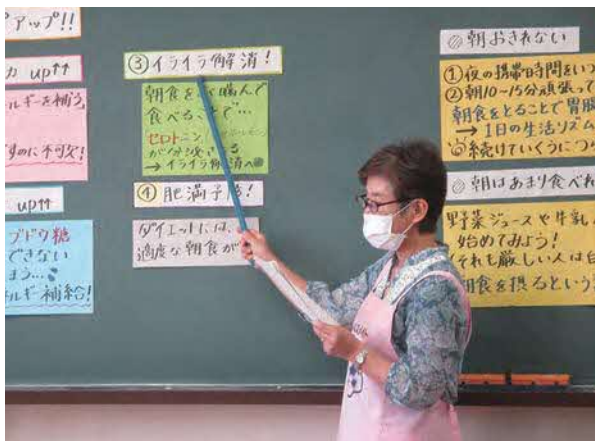 プアップ!!
力 up↑↑
ルギーを補う。
すのに不可欠!
up↑↑
ブドウ糖
できない
まう…
ルギー補給!
③イライラ解消!
朝食をよく噛んで
食べることで…
セロトニン
が分泌される
→イライラ解消へ
④肥満予防!
ダイエットには、
適度な朝食が
◎朝おきれない
①夜の携帯時間をいつ
②朝10~15分頑張って
朝食をとることで胃腸
→1日の生活リズム
続けていくうにつ
◎朝はあまり食べれ
野菜ジュースや牛乳
始めてみよう!
それも厳しい人は白
朝食を摂るという